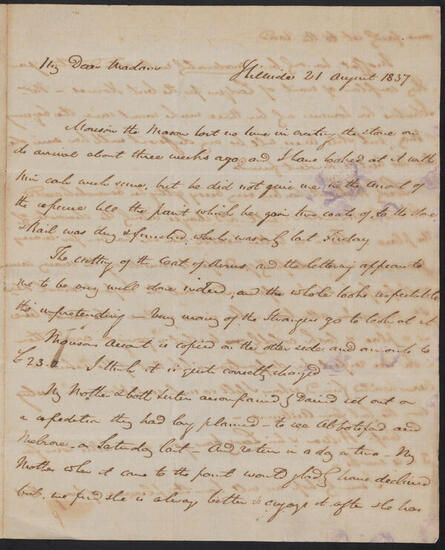 My Dear Madam
Hillside 21 August 1837
Monson the Mason lost no time in erecting the stone on
its arrival about three weeks ago, and I have looked at it with
him each week since, but he did not give me in the amount of
the expense till the paint which he gave two coats of, to the stone
& Rail was dry & finished, which was only last Friday
The cutting of the Coat of Arms, and the lettering appears to
me to be very well done indeed, and the whole looks respectable
tho unpretending - Very many of the Strangers go to look at it
Monsons Account is copied on the other side and amounts to
£23.0 I think it is quite correctly charged
My Mother & both Sisters accompanied by David set out on
a expedition they had long planned - to see Abbotsford and
Melrose on Saturday last - And return in a day or two - My
Mother when it came to the point would gladly have declined
but we find she is always better & enjoys it after she has